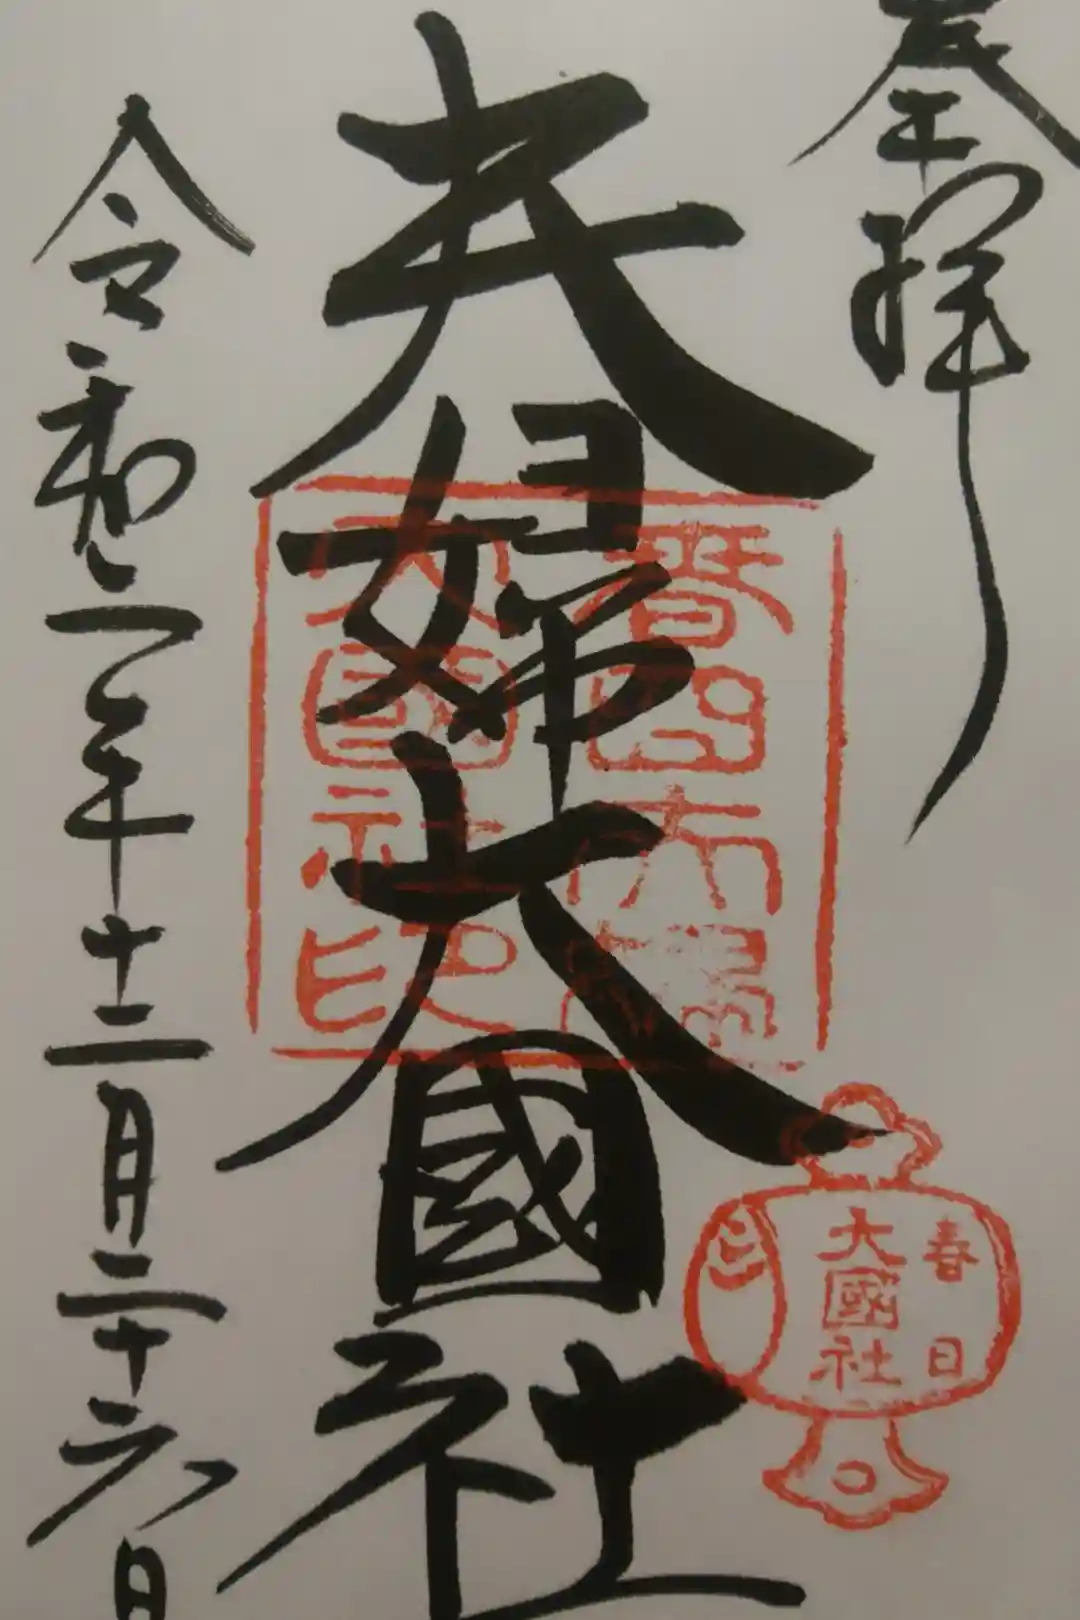 奉拝
夫婦大國社
令和二年十二月二十六日
春日大
大國社印
春日
大國社